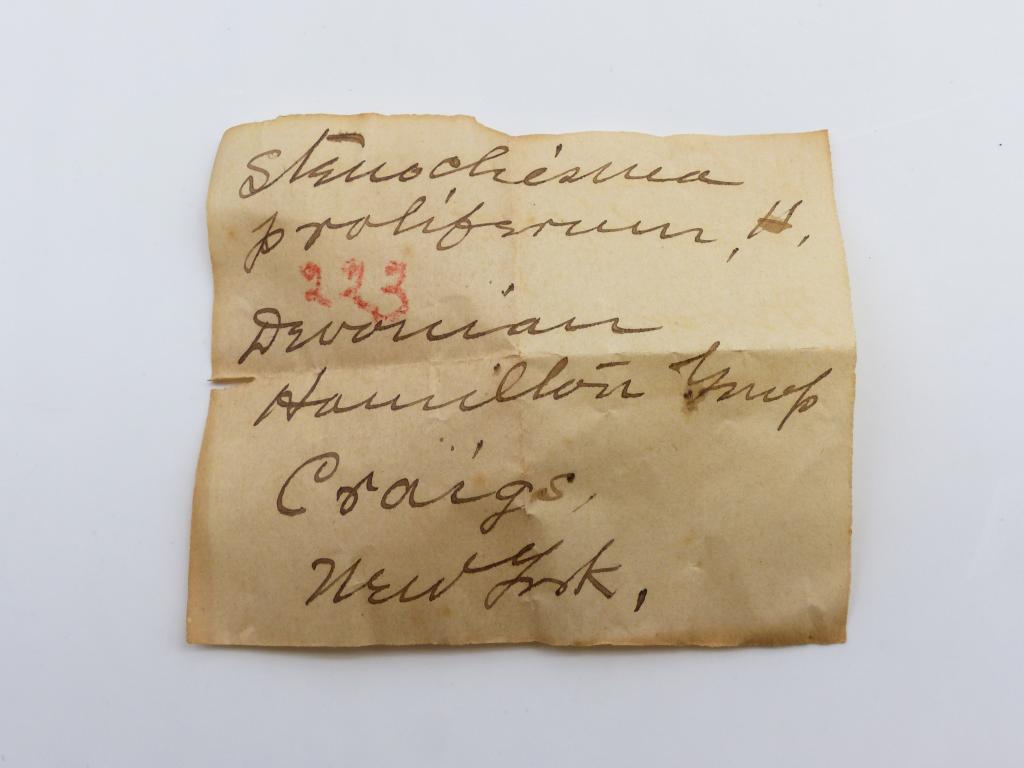 Stenochisma
proliferum, H.
223
Devonian
Hamilton Group
Craigs,
New York,